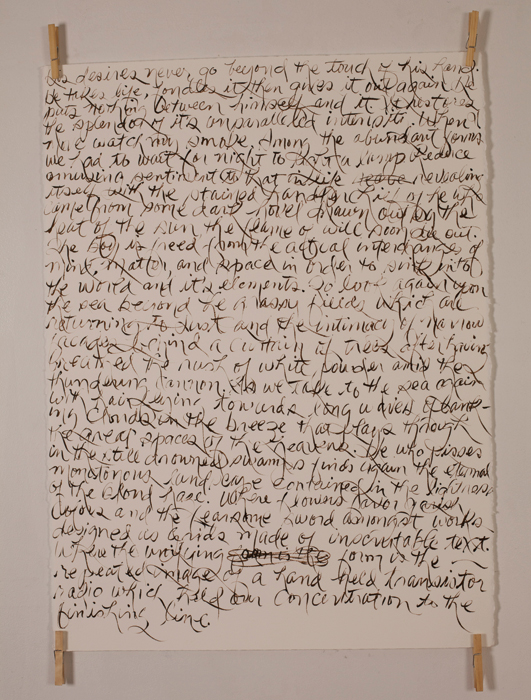 his desires never go beyond the touch of his hand.
He takes life, fondles it then gives it out again. He
puts nothing between himself and it restores
the splendor of it's unparalleled intensity. When
we watch my smoke. Among the abundant forms
we had to wait for night to
amusing sentiment that revealing
itself with the stained handkerchief of
from some dark novel drawn out by the
heat of the sun the flame will soon die out.
The is freed from the actual interchange of
mind, matter, and space in order to sink into
the world and it's elements. So look again upon
the sea beyond the glassy fields which are
returning to dust and the intimacy of narrow
behind a curtain of trees after having
breathed the rush of white powder amid the
thundering As we take to the sea again
with towards long waves of
clouds in the breeze that plays through
the great spaces of the heavens. He who pisses
in the still drowned swamps finds again the eternal
monotonous language contained in the
of the Where flowers favor
colors and the fearsome sword amongst works
designed as grids made of inscrutable text.
Where the form is the
repeated image of a hand held transistor
radio which our concentration to the
finishing line